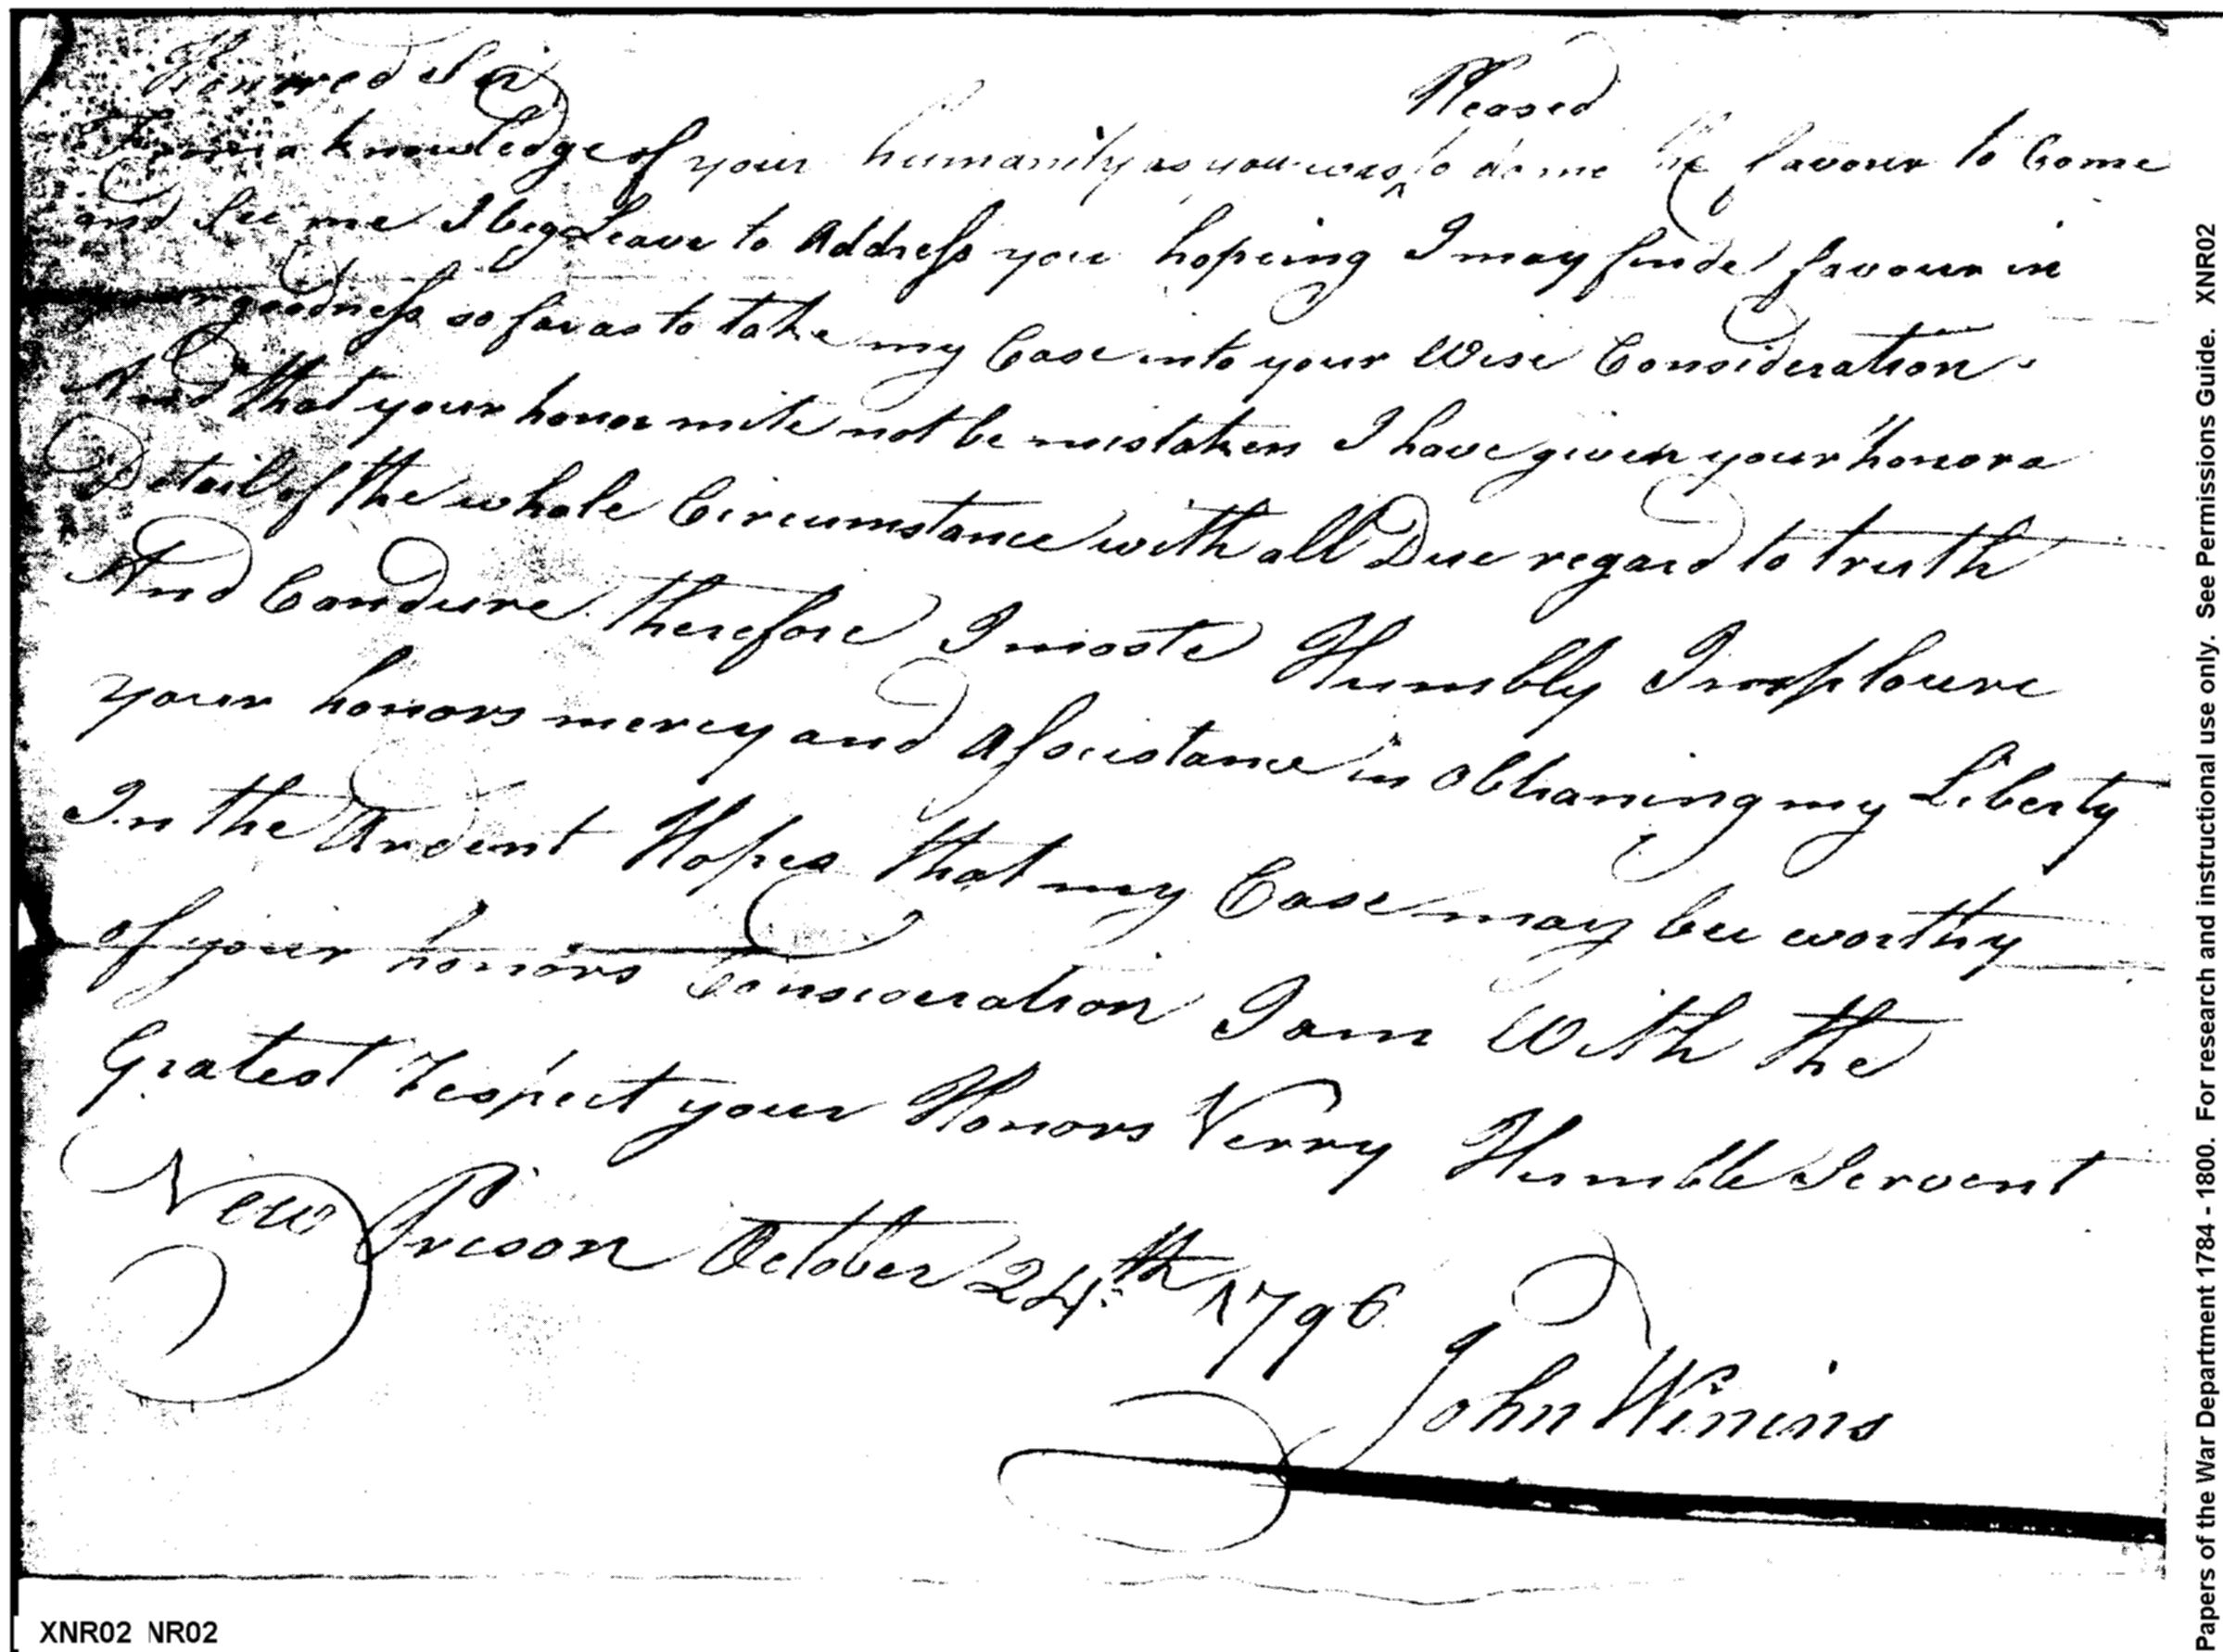 Honored Sir
Pleased
From a knowledge of your humanity as you was ^ to do me the favour to Come
and See me I beg Leave to Address you hopeing I may finde favour in
your goodness so far as to take my Case into your Wise Consideration
And that your honor mite not be mistaken I have given your honor a
Detail of the whole Circumstance with all Due regard to truth
And Candure therefore I moste Humbly Imploure
your honors mercy and Assistance in Obtianing my Liberty
In the Ardent Hopes that my Case may bee worthy
of your honors Consideration I am With the
Gratest respect your Honors Verry Humble Servent
New Prison October 24th 1796
John Winins
XNR02 NR02
Papers of the War Department 1784 - 1800. For research and instructional use only. See Permissions Guide. XNR02